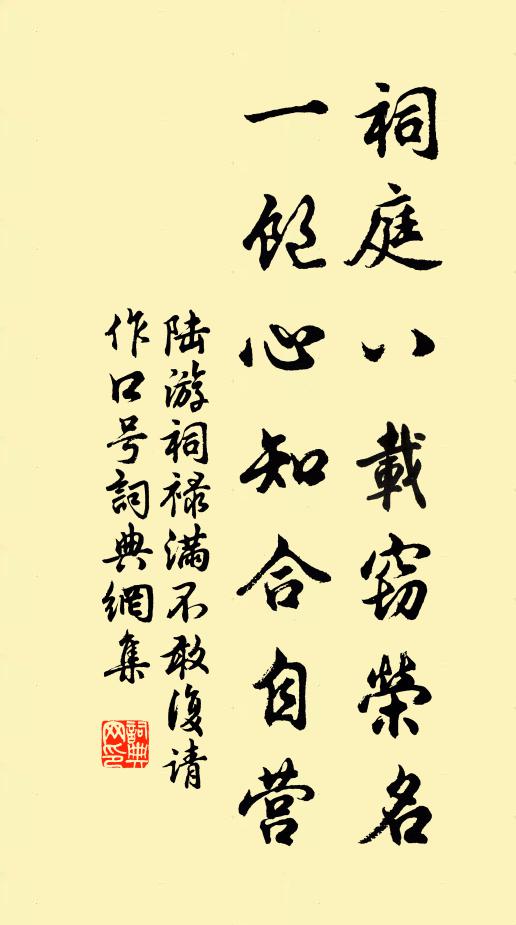 祠庭八載窃榮名
一飽心知合自营
陆游祠禄满不敢復请
作口号詞典網集
詞典网印